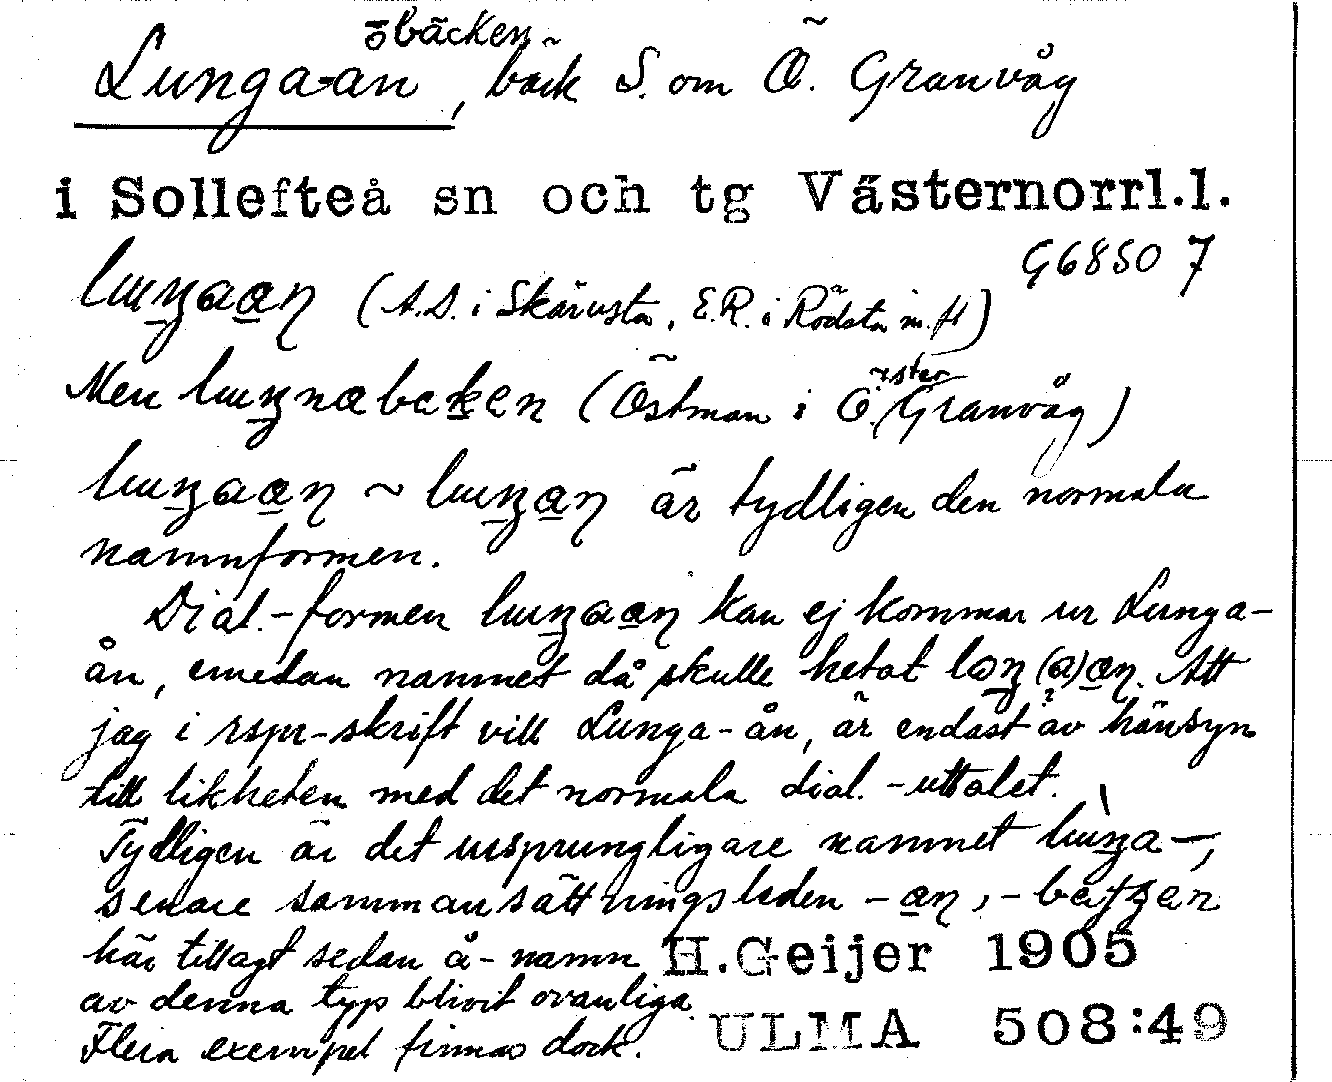 öbäcken
Lunga-ån, bäck S. om Ö. Granvåg
i Sollefteå sn och tg Västernorrl.l.
G6850 7
luŋaan (A.D. i Skärvsta, E.R. i Rödsta m. fl)
Men luŋnabeken (Östman i Ö. Granvåg)
ster
luŋaan ~ luŋan är tydligen den normala
namnformen.
Dial.-formen luŋaan kan ej komma ur Lunga-
ån, emedan namnet då skulle hetat loŋ(a)an. Att
jag i rspr-skrift vill Lunga-ån, är endast av hänsyn
till likheten med det normala dial.-uttalet.
Tydligen är det ursprungligare namnet luŋa-,
senare sammansättningsleden -an, -
här tillagt sedan å-namn
av denna typ blivit ovanliga.
Flera exempel finnas dock.
H.Geijer 1905
ULMA 508:49